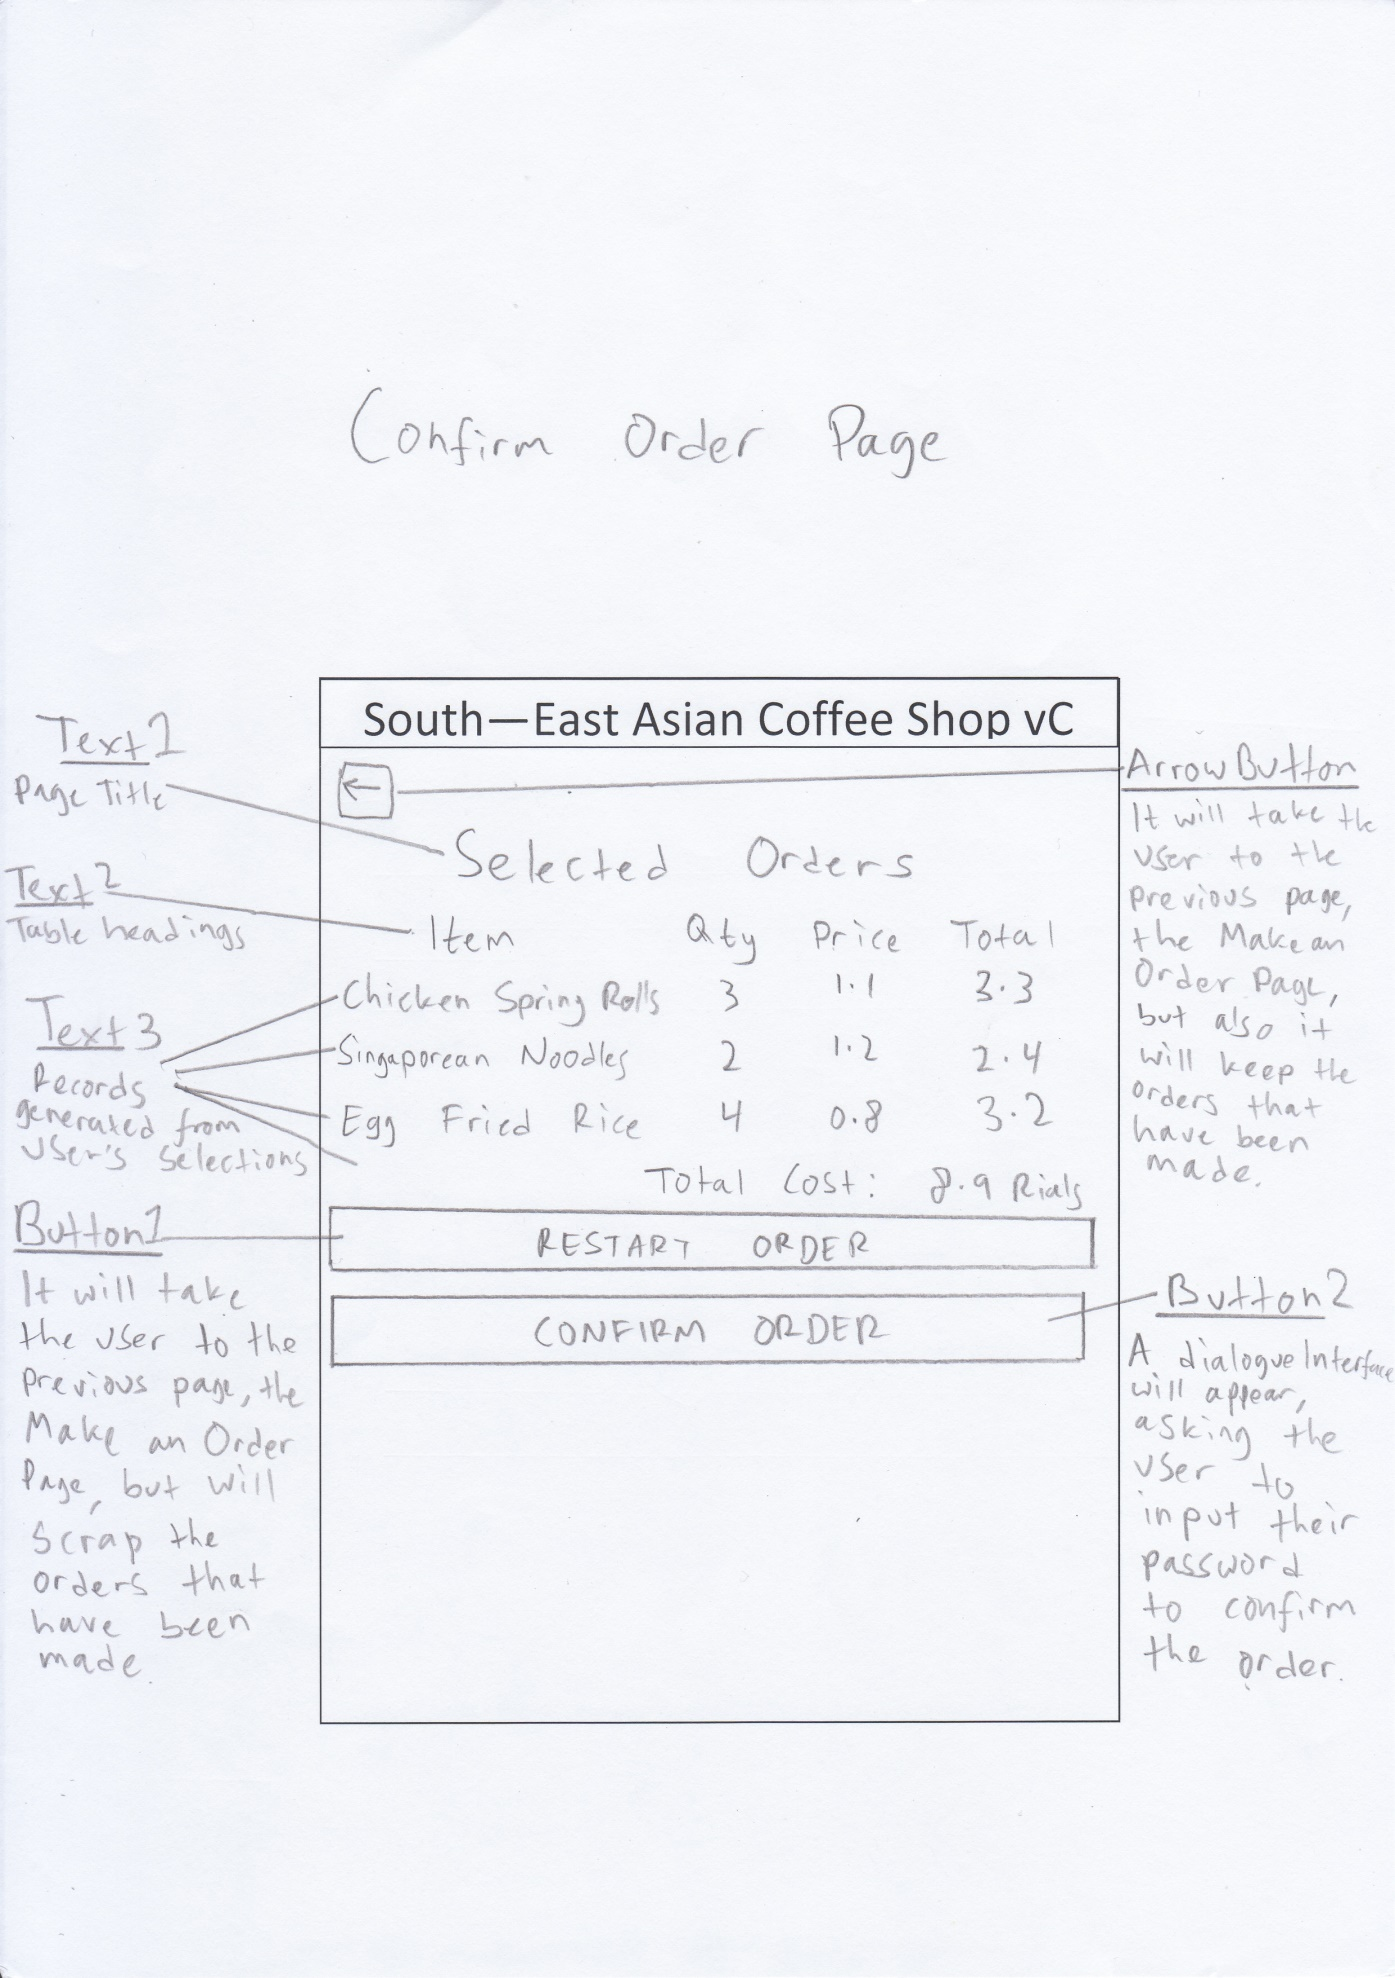 Confirm Order Page
South—East Asian Coffee Shop vC
Text1
Page Title
Text2
Table headings
Text3
Records
generated from
User's Selections
Button1
It will take
the user to the
previous page, the
Make an Order
Page, but will
scrap the
orders that
have been
made.
←
Selected Orders
Item Qty Price Total
Chicken Spring Rolls 3 1.1 3.3
Singaporean Noodles 2 1.2 2.4
Egg Fried Rice 4 0.8 3.2
Total Cost: 8.9 Rials
RESTART ORDER
CONFIRM ORDER
Arrow Button
It will take the
user to the
previous page,
the Make an
Order Page,
but also it
will keep the
orders that
have been
made.
Button2
A dialogue Interface
will appear,
asking the
user to
input their
password
to confirm
the order.